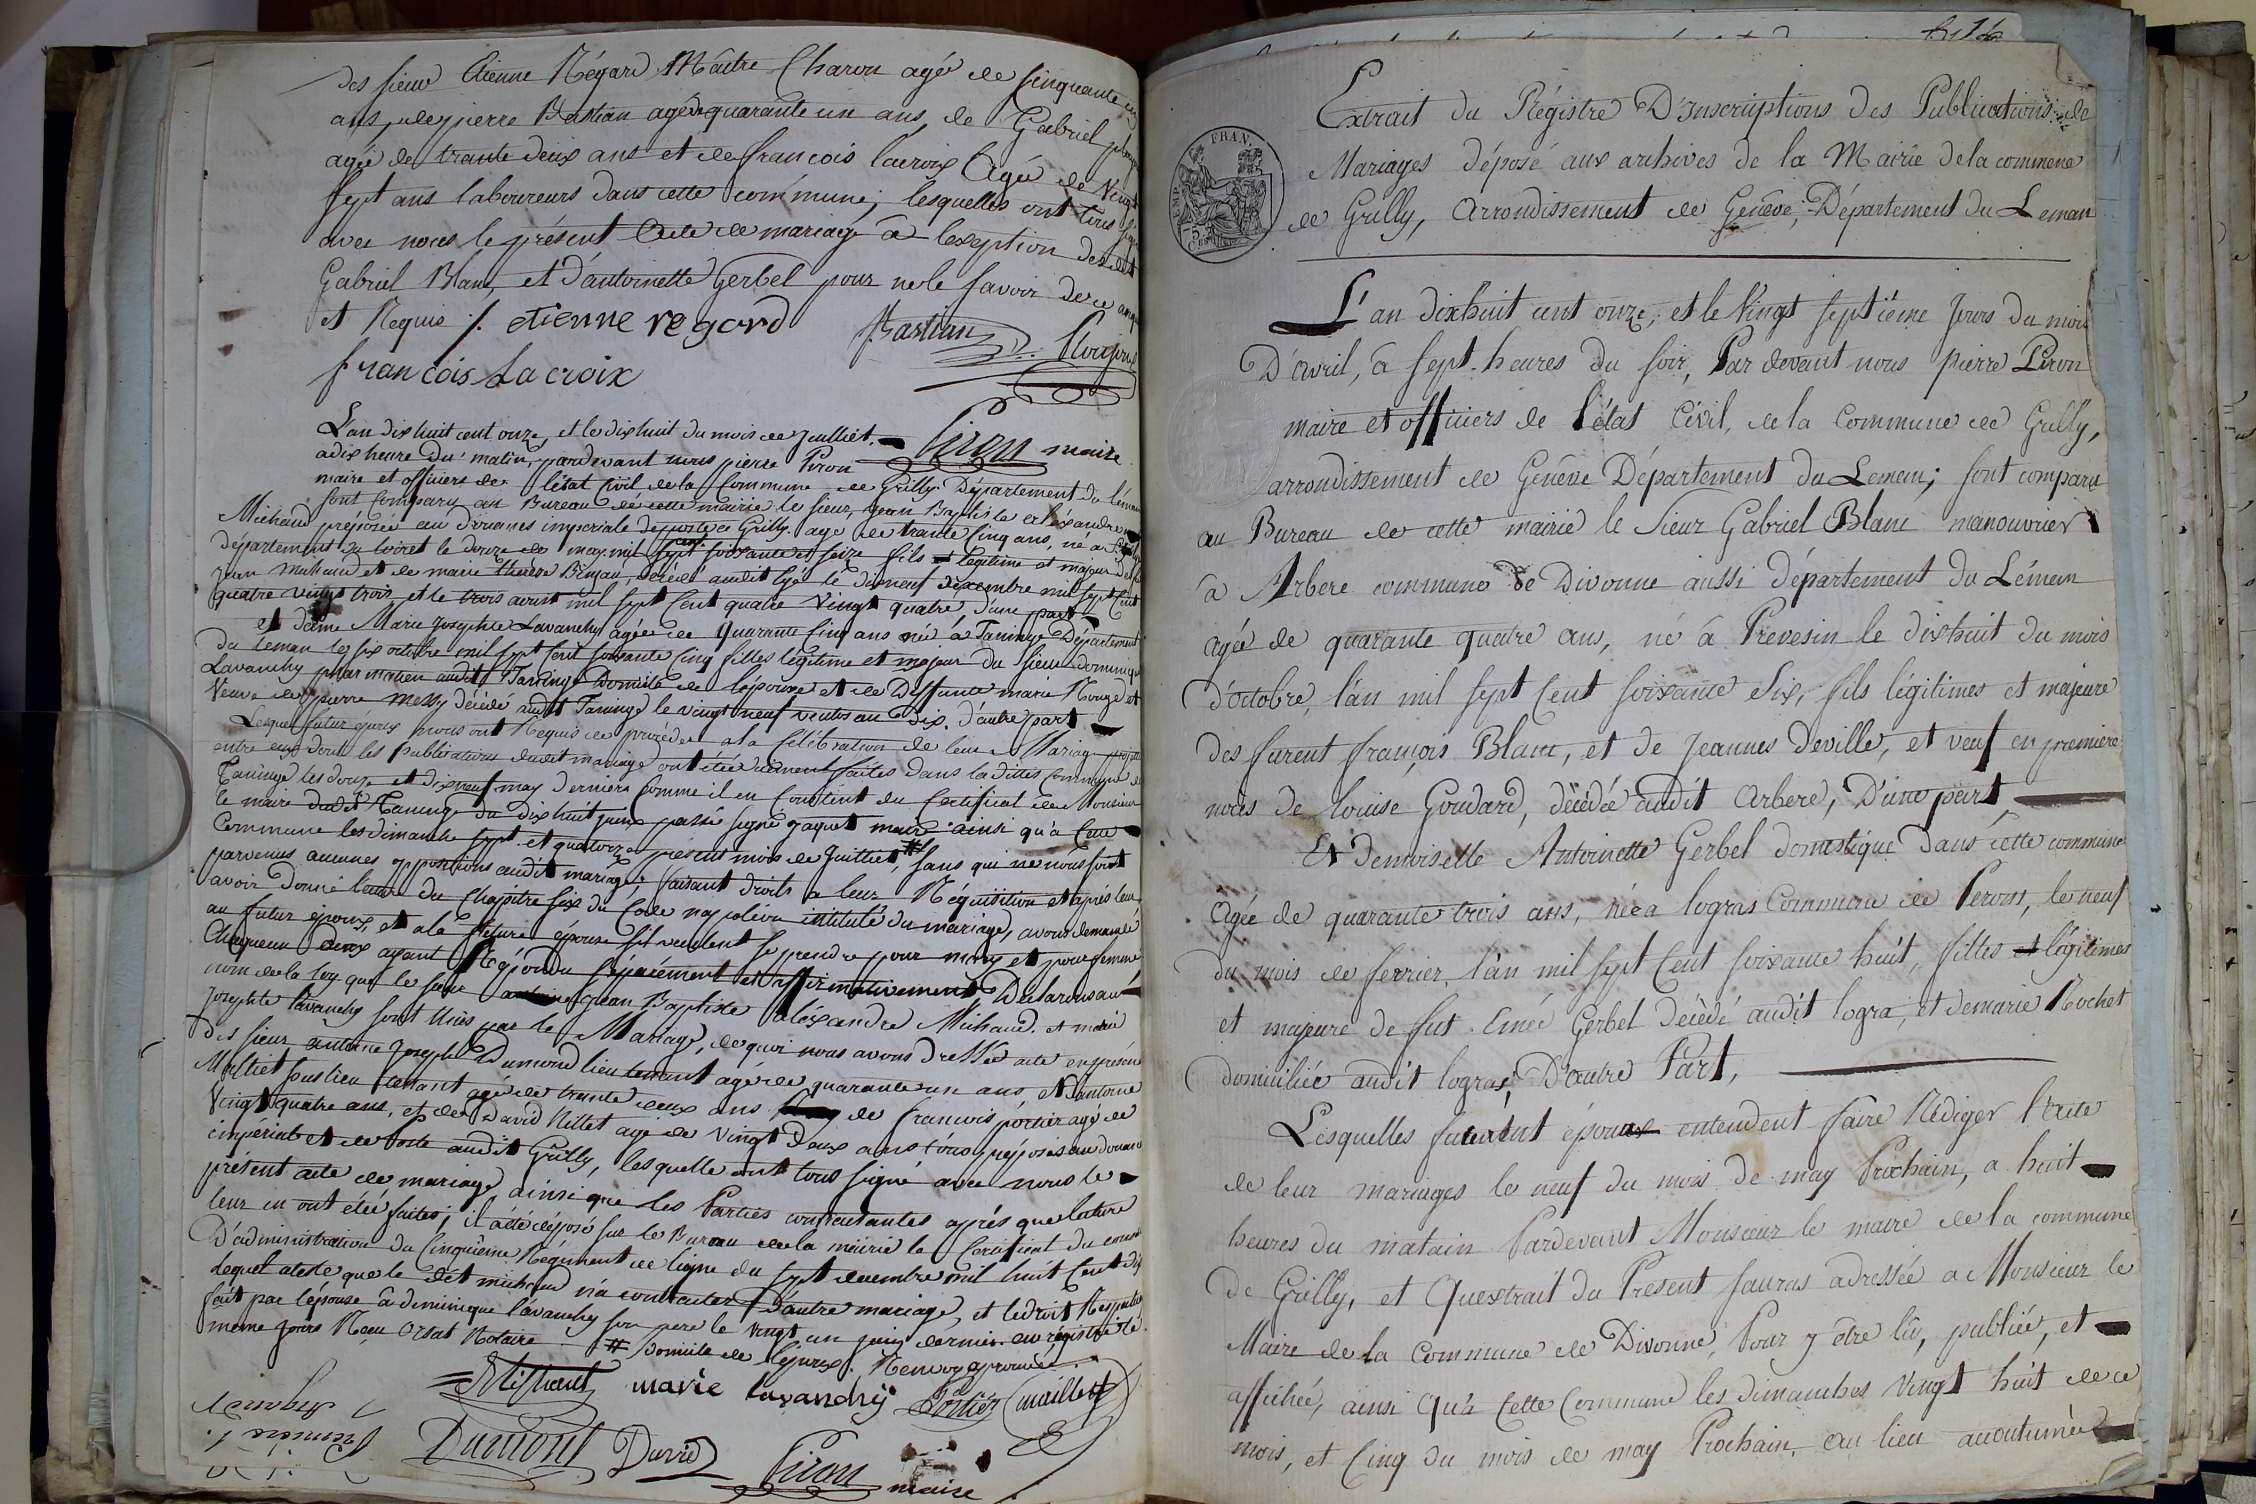 des sieur Etienne Régard Maître Charon agé de cinquante un
ans, de pierre Bastian agé de quarante un ans, de Gabriel
agée de trante deux ans et de francois lacroix Agée de Vingt
sept ans laboureurs dans cette commune, lesquelles ont tous signé
avec nous le présent Acte de mariage à lexeption des dit
Gabriel Blanc, et d'antoinette Gerbel pour ne le savoir de ce anquis
et Requis ./. etienne regard Bastian
francois Lacroix
Piron maire
L'an dix huit cent onze, et le dixhuit du mois de Juilliet.
a dix heure du matin, pardevant nous pierre Piron
maire et officiers de l'état Civil de la Commune de Grilly Département du léman
sont Comparu au Bureau de cette mairie le sieur Jean Baptiste aléxandre
Michaud préposée au douanes imperiale de poste a Grilly agé de trante cinq ans, né a
département du loiret le douze de may mil sept cent soixante et seize fils légitime et majeur de
Jean Michaud et de marie thérèse décédé audit lyé le dixneuf décembre mil sept Cent
quatre vingt trois, et le trois avril mil sept Cent quatre Vingt quatre, d'une part
et dame Marie Josephte Lavanchy agée de quarante Cinq ans née à Taninge Département
du léman le six octobre mil sept Cent soixante Cinq filles légitime et majeur du sieur Dominique
Lavanchy pharmatien audit Taninge Domicile de l'épouse et de Deffunte marie Rouge et
Veuve de pierre Messy décédé audit Taninge le vingt neuf ventos an dix. d'autre part
Lesquel futur epoux nous ont Requis de procéder a la Célébration de leur Mariage projetté
entre eux dont les publications dudit mariage ont étée duement faites dans la dittes Commune de
Taninge les douze et dixneuf may dernière Comme il en Constent du Certificat de Monsieur
le maire dudit Taninge du dix huit juin passée signé jaquet maire ainsi qu'a Cette
Commune les dimanche sept et quatorze present mois de Juilliet,# sans qui ne nous soient
parvenus aucunes oppositions audit mariage; faisant droits a leur Réquisition et après leur
avoir donné lecture du Chapitre six du Code napoléon intitulé du mariage, avons demandé
au futur époux, et a la future épouse s'il veulent se prendre pour mary et pour femme
Chaqueun deux ayant Répondu séparément et affirmativement Déclarons au
nom de la loy que le sieur Jean Baptiste aléxandre Michaud. et marie
Josephte Lavanchy sont Unis par le Mariage, de quoi nous avons dressée acte en présence
des sieur antoine Joseph Dumond lieutenant agé de quarante un ans, et d'antoine
Malliet sous lieutenant agé de trante deux ans de francois portier agé de
Vingt quatre ans, et de David Nillet agé de vingt deux ans tous préposés au douane
impérial et de poste audit Grilly, lesquelle ont tous signé avec nous le
présent acte de mariage ainsi que les Parties contractantes après que lecture
leur en ont étée faites; il a été déposé sur le Bureau de la mairie le Certificat du conseil
D'administration du Cinquième Régiment de ligne du sept décembre mil huit Cent dix
lequel ateste que le dit michaud n'a contracter d'autre mariage, et ledroit Respectueux
fait par l'épouse à dominique lavanchy son pere le vingt un juin dernier enrégistré le
meme jours Reçu Orsat Notaire # Domicile de l'époux. Renvoy aprouvée
Michaud marie lavanchy Portier Malliet
Dumont David Piron maire
Extrait du Régistre D'Inscriptions des Publications de
Mariages déposé aux archives de la Mairie dela commune
de Grilly, Arrondissement de Genève, Département du Leman
EMP. FRAN.
L'an dixhuit cent onze, et le Vingt septième Jours du mois
D'avril, à sept heures du soir, Par devant nous pierre Piron
maire et officiers de l'état Civil, de la Commune de Grilly,
arrondissement de Genève Département du Leman; sont comparu
au Bureau de cette mairie le Sieur Gabriel Blanc manouvrier
à Arbere commune de Divonne aussi département du Léman
agée de quarante quatre ans, né à Prevesin le dixhuit du mois
d'octobre, l'an mil sept Cent soixante Six, fils légitimes et majeure
des furent françois Blanc, et de Jeannes deville, et veuf en première
noces de louise Goudard, décédée audit Arbere, D'une part,
Et demoiselle Antoinette Gerbel domestique dans cette commune
Agée de quarante trois ans, née a logras Commune de Peron, le neuf
du mois de fevrier l'an mil sept Cent soixante huit, filles et légitimes
et majeure de fut Emée Gerbel décédé audit logra, et demarie Rochet
domiciliée audit logras, D'autre Part,
Lesquelles futurent époux entendent faire Rédiger l'acte
de leur mariages le neuf du mois de may Prochain, a huit
heures du matain Pardevant Monsieur le maire de la commune
de Grilly, et Quextrait du Présent sauras adressée a Monsieur le
Maire de la Commune de Divonne, Pour y être lû, publiée, et
affichée, ainsi Qu'à Cette Commune les dimanches Vingt huit de ce
mois, et Cinq du mois de may Prochain, au lieu acoutumée